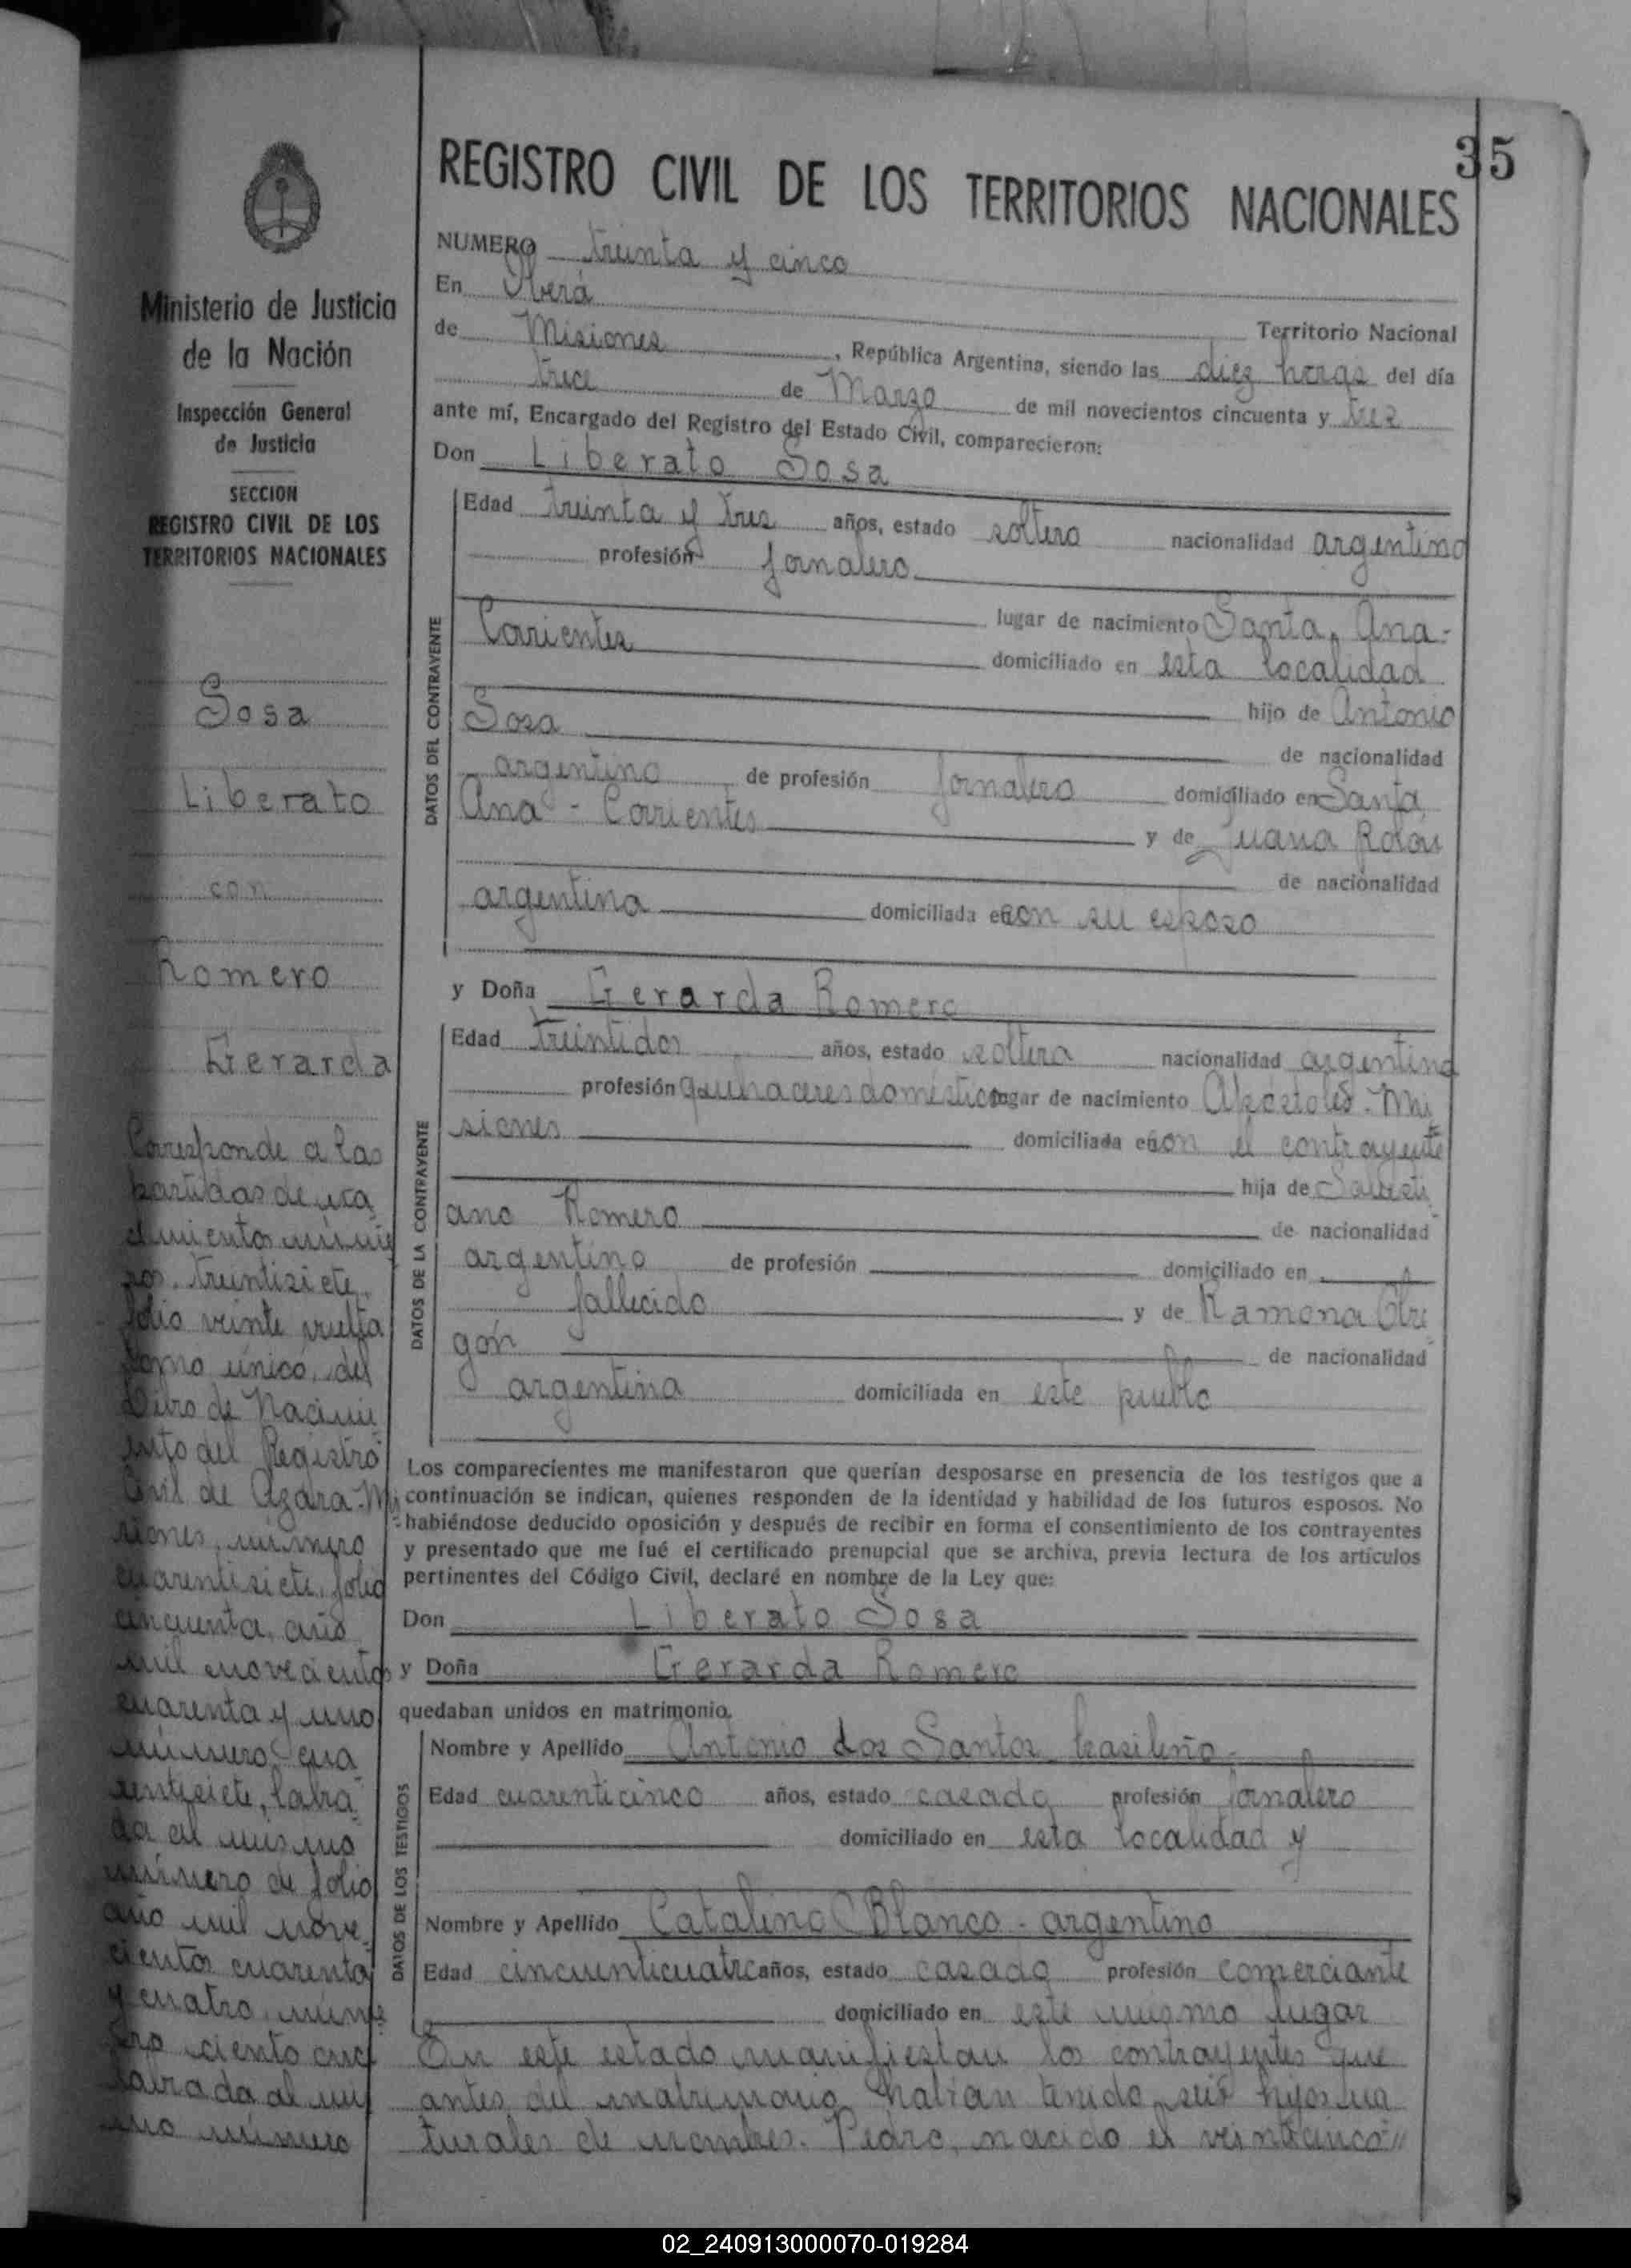 35
REGISTRO CIVIL DE LOS TERRITORIOS NACIONALES
Ministerio de Justicia
de la Nación
Inspección General
de Justicia
SECCION
REGISTRO CIVIL DE LOS
TERRITORIOS NACIONALES
Sosa
Liberato
con
Romero
Gerarda
Corresponde a las
partidas de na
cimientos núme
ros, treintisiete
folio veinte vuelta
tomo único, del
Libro de Nacimi
ento del Registro
Civil de Azara-Mi
siones, número
cuarentisiete, folio
cincuenta, año
mil novecientos
cuarenta y uno
número cua
rentisiete, labra
da al mismo
número de folio
año mil nove
cientos cuarenta
y cuatro, núme
ro ciento
labrada al mis
mo número
NUMERO treinta y cinco
En Oberá Territorio Nacional
de Misiones, República Argentina, siendo las diez horas del día
trece de Marzo de mil novecientos cincuenta y tres
ante mí, Encargado del Registro del Estado Civil, comparecieron:
Don Liberato Sosa
DATOS DEL CONTRAYENTE
Edad treinta y tres años, estado soltero nacionalidad argentino
profesión jornalero
lugar de nacimiento Santa Ana-
Corrientes domiciliado en esta localidad
hijo de Antonio
Sosa de nacionalidad
argentino de profesión jornalero domiciliado en Santa
Ana - Corrientes y de Juana Rolon
de nacionalidad
argentina domiciliada en con su esposo
y Doña Gerarda Romero
DATOS DE LA CONTRAYENTE
Edad treintidos años, estado soltera nacionalidad argentina
profesión quehaceres domésticos lugar de nacimiento Apóstoles-Mi
siones domiciliada en con el contrayente
hija de
ano Romero de nacionalidad
argentino de profesión domiciliado en
fallecido y de Ramona Obre
gón de nacionalidad
argentina domiciliada en este pueblo
Los comparecientes me manifestaron que querían desposarse en presencia de los testigos que a
continuación se indican, quienes responden de la identidad y habilidad de los futuros esposos. No
habiéndose deducido oposición y después de recibir en forma el consentimiento de los contrayentes
y presentado que me fué el certificado prenupcial que se archiva, previa lectura de los artículos
pertinentes del Código Civil, declaré en nombre de la Ley que:
Don Liberato Sosa
y Doña Gerarda Romero
quedaban unidos en matrimonio.
DATOS DE LOS TESTIGOS
Nombre y Apellido Antonio dos Santos brasileño-
Edad cuarenticinco años, estado casado profesión jornalero
domiciliado en esta localidad y
Nombre y Apellido Catalino Blanco - argentino
Edad cincuenticuatro años, estado casado profesión comerciante
domiciliado en este mismo lugar
En este estado manifiestan los contrayentes que
antes del matrimonio habian tenido seis hijos na
turales de nombres. Pedro, nacido el veinticinco//
02_240913000070-019284